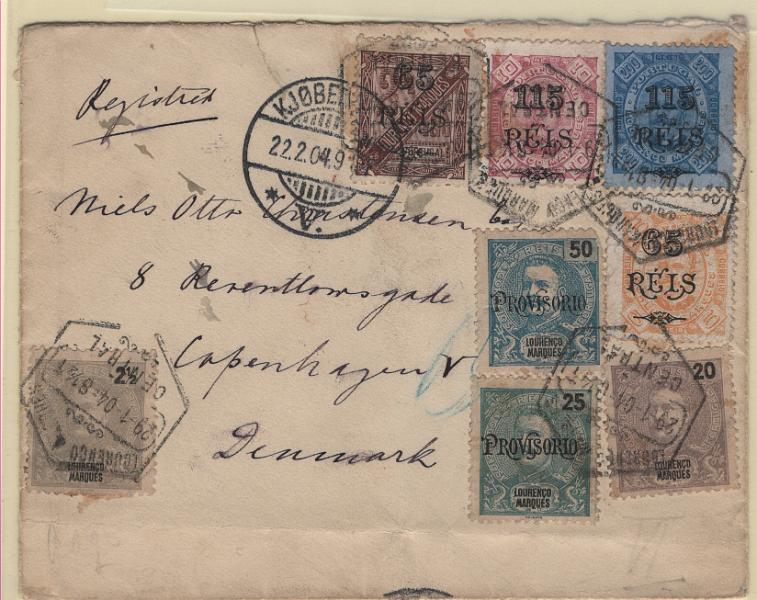 Registred
KJØBE
22.2.04.9
V.
65
REIS
LOURENÇO MARQUES
115
RÉIS
115
RÉIS
PORTUGAL
Niels Otto Christensen
8 Reventlowsgade
Copenhagen V
Denmark
50
PROVISORIO
LOURENÇO
MARQUES
65
RÉIS
2½
LOURENÇO
MARQUES
CENTRAL
29-1-04
LOURENCO
25
PROVISORIO
LOURENÇO
MARQUES
20
LOURENÇO
MARQUES
CENTRAL